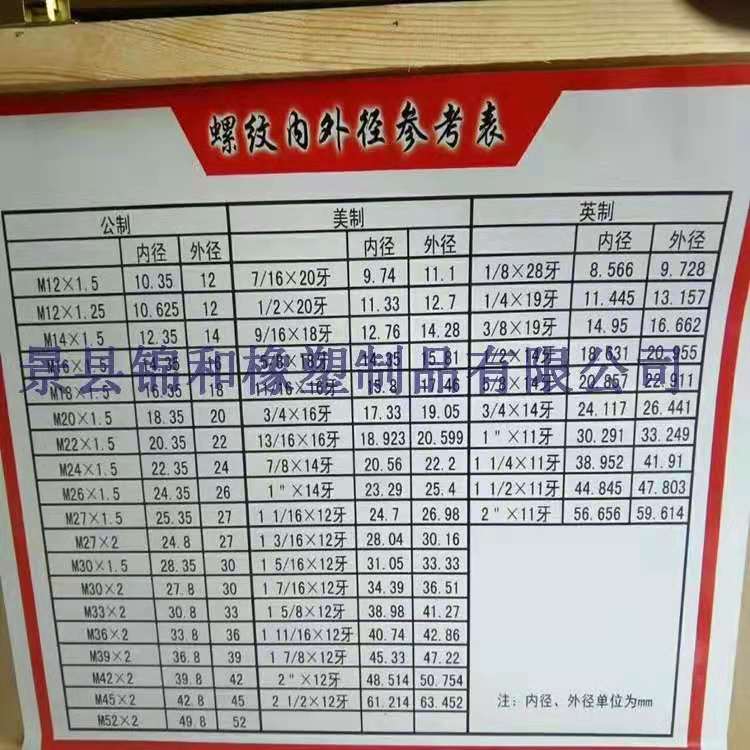 螺纹内外径参考表
公制 美制 英制
内径 外径 内径 外径 内径 外径
M12×1.5 10.35 12 7/16×20牙 9.74 11.1 1/8×28牙 8.566 9.728
M12×1.25 10.625 12 1/2×20牙 11.33 12.7 1/4×19牙 11.445 13.157
M14×1.5 12.35 14 9/16×18牙 12.76 14.28 3/8×19牙 14.95 16.662
M16×1.5 14.35 16 5/8×18牙 14.35 15.81 1/2×14牙 18.631 20.955
景县锦和橡塑制品有限公司
M18×1.5 16.35 18 11/16×16牙 15.8 17.46 5/8×14牙 20.857 22.911
M20×1.5 18.35 20 3/4×16牙 17.33 19.05 3/4×14牙 24.117 26.441
M22×1.5 20.35 22 13/16×16牙 18.923 20.599 1"×11牙 30.291 33.249
M24×1.5 22.35 24 7/8×14牙 20.56 22.2 1 1/4×11牙 38.952 41.91
M26×1.5 24.35 26 1"×14牙 23.29 25.4 1 1/2×11牙 44.845 47.803
M27×1.5 25.35 27 1 1/16×12牙 24.7 26.98 2"×11牙 56.656 59.614
M27×2 24.8 27 1 3/16×12牙 28.04 30.16
M30×1.5 28.35 30 1 5/16×12牙 31.05 33.33
M30×2 27.8 30 1 7/16×12牙 34.39 36.51
M33×2 30.8 33 1 5/8×12牙 38.98 41.27
M36×2 33.8 36 1 11/16×12牙 40.74 42.86
M39×2 36.8 39 1 7/8×12牙 45.33 47.22
M42×2 39.8 42 2"×12牙 48.514 50.754
M45×2 42.8 45 2 1/2×12牙 61.214 63.452
M52×2 49.8 52
注：内径、外径单位为mm